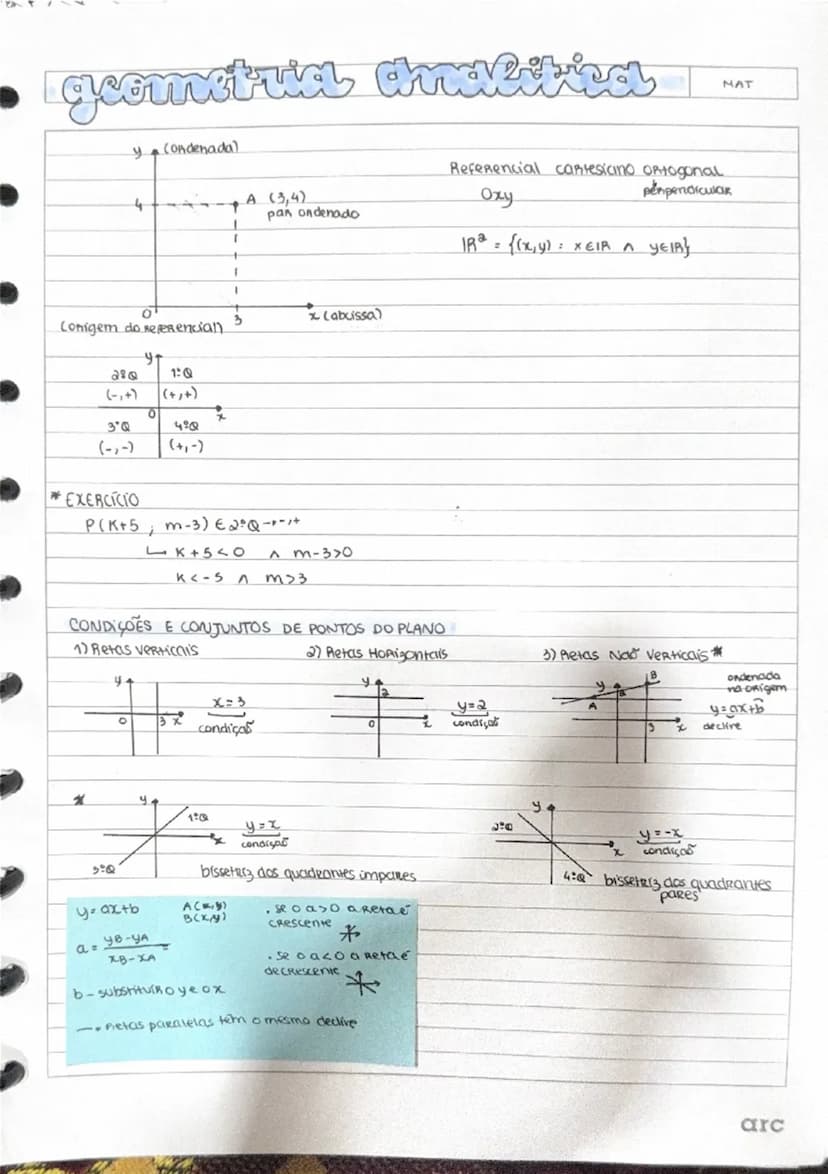 geometria analítica
MAT
y (ordenada)
4
A (3,4)
par ordenado
0
3
x (abcissa)
(origem do referencial)
Referencial cartesiano ortogonal
Oxy
perpendicular
IR² = {(x,y) : x ∈ IR ∧ y ∈ IR}
y
2ºQ 1ºQ
(-,+) (+,+)
0 x
3ºQ 4ºQ
(-,-) (+,-)
* EXERCÍCIO
P(K+5 ; m-3) ∈ 2ºQ → - , +
↳ K+5<0 ∧ m-3>0
K<-5 ∧ m>3
CONDIÇÕES E CONJUNTOS DE PONTOS DO PLANO
1) Retas verticais
2) Retas Horizontais
3) Retas Não Verticais *
y
0 3 x
x=3
condição
y
2
0 x
y=2
condição
y
A
B
3 x
ordenada
na origem
y=ax+b
declive
*
y
1ºQ
x
3ºQ
y=x
condição
bissetriz dos quadrantes ímpares
y
2ºQ
x
4ºQ
y=-x
condição
bissetriz dos quadrantes
pares
y=ax+b
A(x,y)
B(x,y)
a = yB-yA / xB-xA =
b - substituir o y e o x
→ Retas paralelas têm o mesmo declive
. se o a>0 a reta é
crescente
. se o a<0 a reta é
decrescente
arc